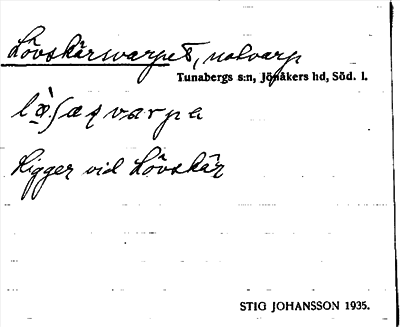 Lövskärsvarpet, notvarp
Tunabergs s:n, Jönåkers hd, Söd. l.
Ligger vid Lövskär
STIG JOHANSSON 1935.